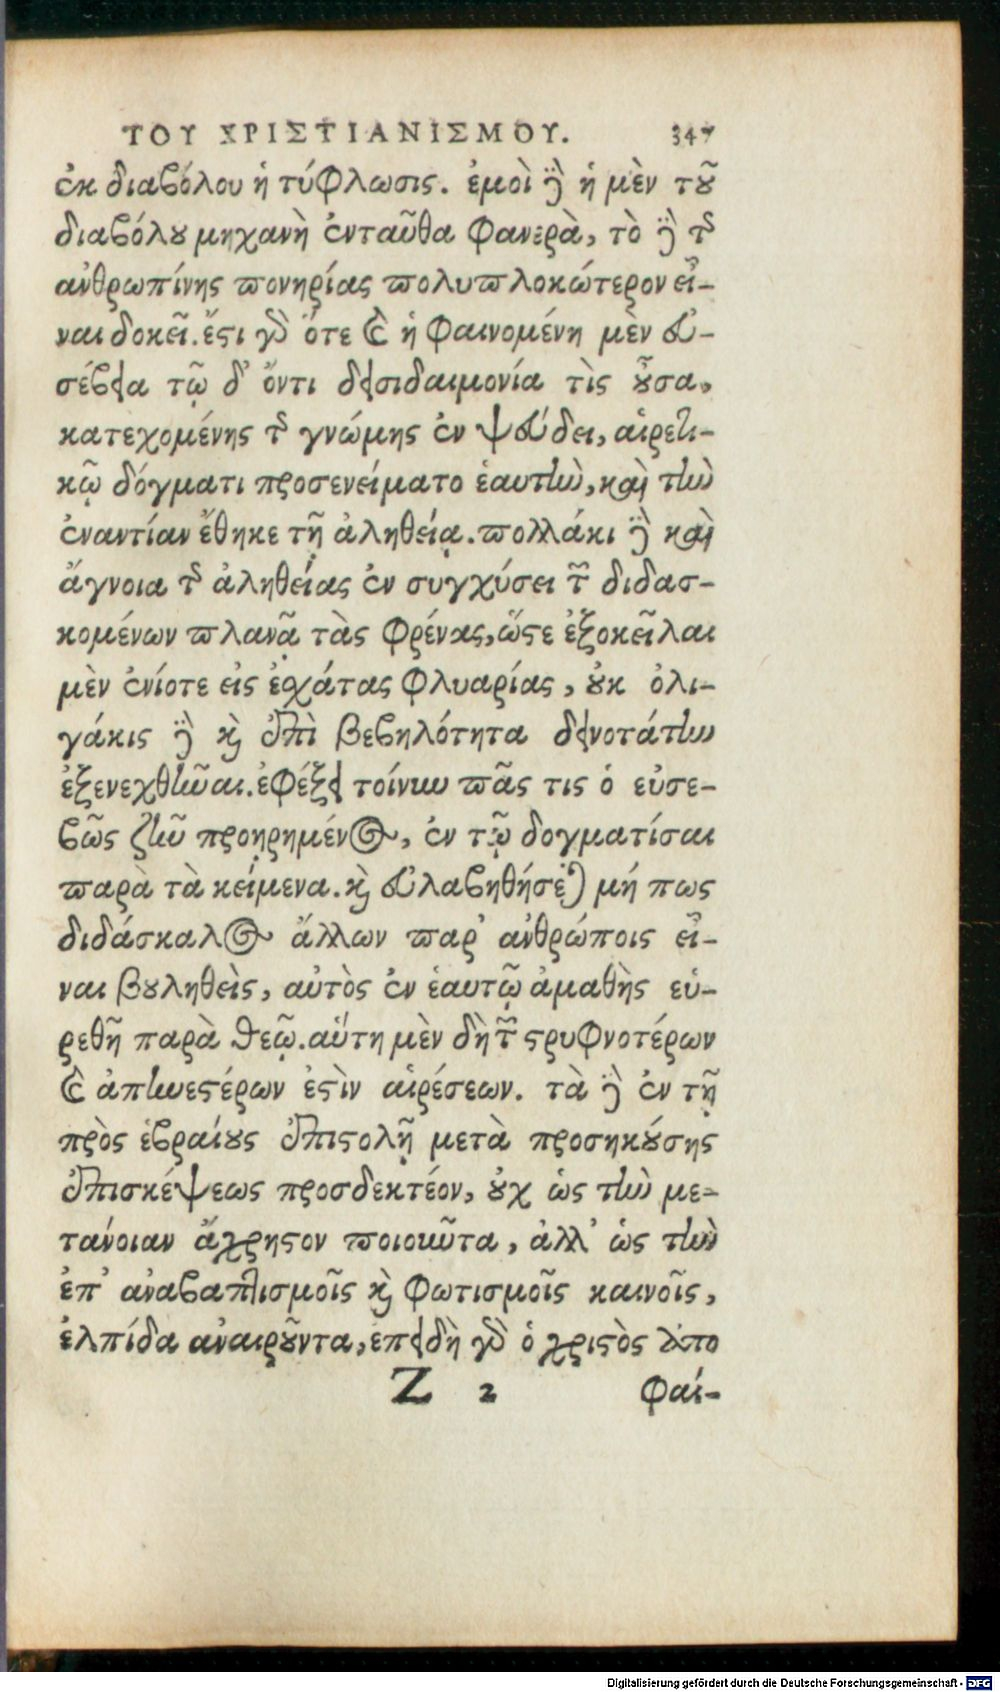 ΤΟΥ ΧΡΙΣΤΙΑΝΙΣΜΟΥ. 347
ἐκ διαβόλου ἡ τύφλωσις. ἐμοὶ δὲ ἡ μὲν τοῦ
διαβόλου μηχανὴ ἐνταῦθα φανερὰ, τὸ δὲ τῆς
ἀνθρωπίνης πονηρίας πολυπλοκώτερον εἶ-
ναι δοκεῖ. ἔστι γὰρ ὅτε καὶ ἡ φαινομένη μὲν εὐ-
σέβεια τῷ δ' ὄντι δεισιδαιμονία τὶς οὖσα,
κατεχομένης τῆς γνώμης ἐν ψεύδει, αἱρετι-
κῷ δόγματι προσενείματο ἑαυτὴν, καὶ τὴν
ἐναντίαν ἔθηκε τῇ ἀληθείᾳ. πολλάκι δὲ καὶ
ἄγνοια τῆς ἀληθείας ἐν συγχύσει τῶν διδασ-
κομένων πλανᾷ τὰς φρένας, ὥστε ἐξοκεῖλαι
μὲν ἐνίοτε εἰς ἐσχάτας φλυαρίας, οὐκ ὀλι-
γάκις δὲ καὶ ἐπὶ βεβηλότητα δεινοτάτην
ἐξενεχθῆναι. ἐφέξει τοίνυν πᾶς τις ὁ εὐσε-
βῶς ζῆν προηρημένος, ἐν τῷ δογματίσαι
παρὰ τὰ κείμενα. καὶ εὐλαβηθήσεται μή πως
διδάσκαλος ἄλλων παρ' ἀνθρώποις εἶ-
ναι βουληθεὶς, αὐτὸς ἐν ἑαυτῷ ἀμαθὴς εὑ-
ρεθῇ παρὰ θεῷ. αὕτη μὲν δὴ τῶν στρυφνοτέρων
καὶ ἀπηνεστέρων ἐστὶν αἱρέσεων. τὰ δὲ ἐν τῇ
πρὸς ἑβραίους ἐπιστολῇ μετὰ προσηκούσης
ἐπισκέψεως προσδεκτέον, οὐχ ὡς τὴν με-
τάνοιαν ἄχρηστον ποιοῦντα, ἀλλ' ὡς τὴν
ἐπ' ἀναβαπτισμοῖς καὶ φωτισμοῖς καινοῖς,
ἐλπίδα ἀναιροῦντα, ἐπειδὴ γὰρ ὁ χριστὸς ἀπο
Z 2 φαί-
Digitalisierung gefördert durch die Deutsche Forschungsgemeinschaft - DFG